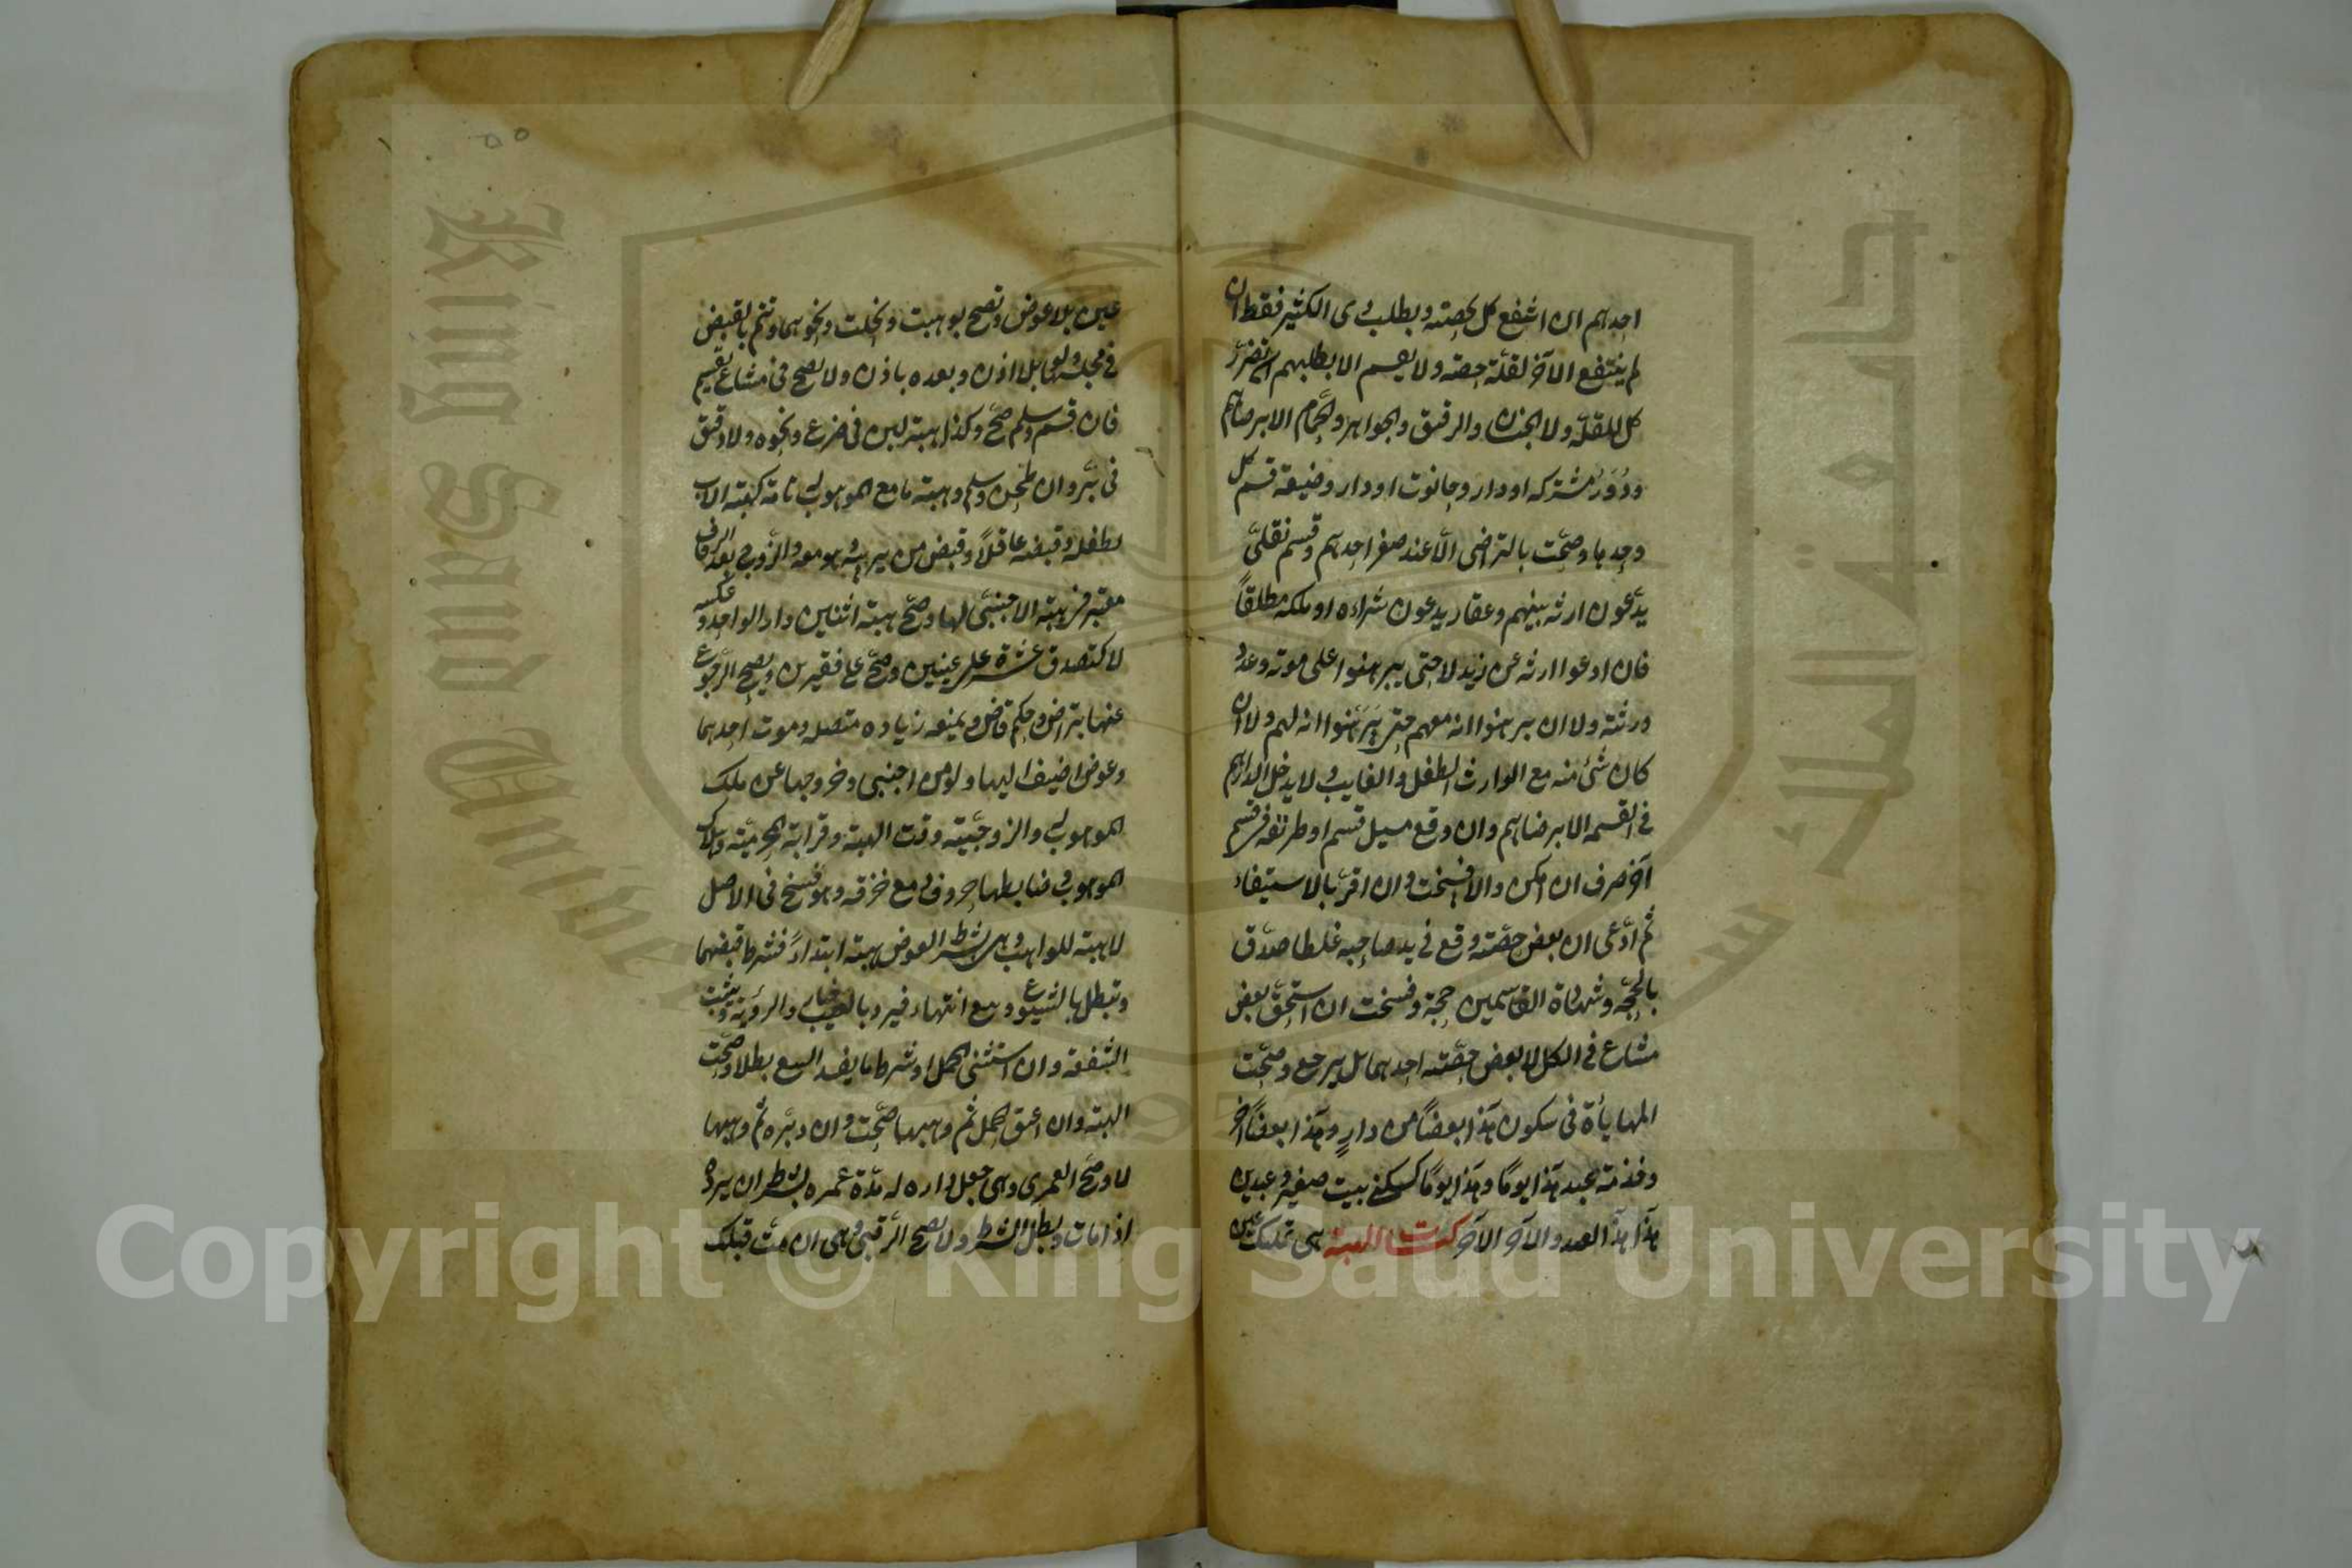 احدهم ان انتفع كل بحصته وبطلب ذى الكثير فقط ان
لم ينتفع الآخر لقلة حصته ولا يقسم الا بطلبهم ان تضرر
كل للقلة ولا الجنسان والرقيق والجواهر والحمام الا برضاهم
ودور مشتركه او دار وحانوت او دار وضيعة قسم كل
وحدها وصحت بالتراضى الا عند صغر احدهم وقسم نقلى
يدعون ارثه بينهم وعقار يدعون شراءه او ملكه مطلقاً
فان ادعوا ارثه عن زيد لا حتى يبرهنوا على موته وعدد
ورثته ولا ان برهنوا انه معهم حتى يبرهنوا انه لهم ولا ان
كان شئ منه مع الوارث الطفل والغايب ولا يدخل الدراهم
فى القسمه الا برضاهم وان وقع مسيل قسم او طريقه فى قسم
آخر صرف ان امكن والا فسخت وان اقر بالاستيفاء
ثم ادعى ان بعض حصته وقع فى يد صاحبه غلطا صدق
بالحجه وشهادة القاسمين حجة وفسخت ان استحق بعض
مشاع فى الكل لا بعض حصته احدهما بل يرجع وصحت
المهايأة فى سكون هذا بعضاً من دار وهذا بعضاً آخر
وخدمة عبد هذا يوماً وهذا يوماً كسكنى بيت صغير وعبدين
هذا هذا العبد والآخر الآخر كتاب الهبة هى تمليك عين
عين بلا عوض وتصح بوهبت ونحلت ونحوهما وتتم بالقبض
فى مجلسها ولو بلا اذن وبعده باذن ولا تصح فى مشاع يقسم
فان قسم وسلم صح وكذا هبة لبن فى ضرع ونحوه ولا دقيق
فى بر وان طحن وسلم وهبة ما مع الموهوب له تامة كهبة الاب
لطفله وقبضه عاقلاً وقبض من يربيه وهو معه والزوج بعد الزفاف
معتبر فى هبة الاجنبى لها وصح هبة اثنين دار الواحد وعكسه
لا كتصدق عشرة على غنيين وصح على فقيرين ويصح الرجوع
عنها بتراض وحكم قاض ويمنعه زياده متصله وموت احدهما
وعوض اضيف اليها ولو من اجنبى وخروجها عن ملك
الموهوب له والزوجية وقت الهبة وقرابة المحرمية وهلاك
الموهوب وضابطها حروف دمع خزقه وهو فسخ فى الاصل
لا هبة للواهب وهى بشرط العوض هبة ابتداءً فشرط قبضهما
وتبطل بالشيوع وبيع انتهاء فيرد بالعيب وخيار الرؤية وتثبت
الشفعة وان استثنى الحمل او شرط ما يفسد البيع بطلا وصحت
الهبة وان اعتق الحمل ثم وهبها صحت وان دبره ثم وهبها
لا وصح العمرى وهى جعل داره له مدة عمره بشرط ان يرد
اذا مات وبطل الشرط ولا تصح الرقبى وهى ان مت قبلك
Copyright © King Saud University
King Saud University
جامعة الملك سعود
1957